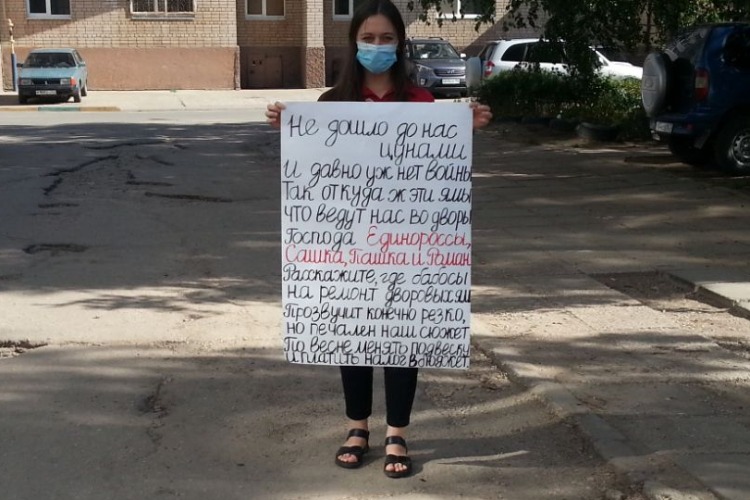 Не дошло до нас
цунами
И давно уж нет войны
Так откуда ж эти ямы
что ведут нас во дворы
Господа Единороссы,
Сашка, Пашка и Роман
Расскажите, где бабосы
на ремонт дворовых ям
Прозвучит конечно резко,
но печален наш сюжет
По весне менять подвеску
и платить налог в бюджет